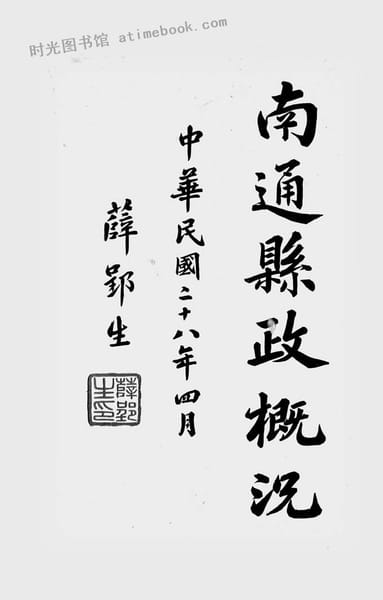 时光图书馆 atimebook.com
南通縣政概況
中華民國二十八年四月
薛郢生
薛郢生印